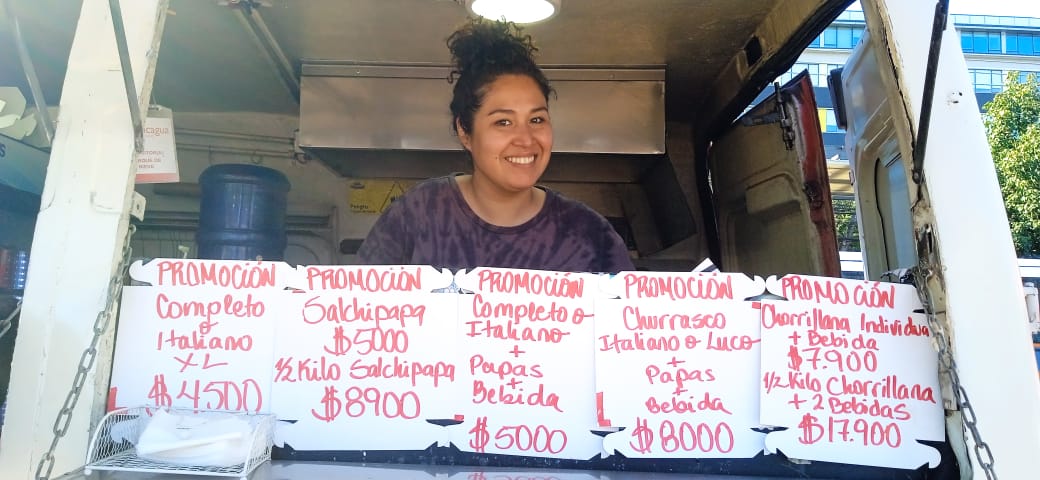 PROMOCIÓN
Completo
o
Italiano
XL
$4500
PROMOCIÓN
Salchipapa
$5000
1/2 Kilo Salchipapa
$8900
PROMOCIÓN
Completo o
Italiano
+
Papas
+
Bebida
$5000
PROMOCIÓN
Churrasco
Italiano o Luco
+
Papas
+
Bebida
$8000
PROMOCIÓN
Chorrillana Individua
+ Bebida
$7.900
1/2 Kilo Chorrillana
+ 2 Bebidas
$17.900